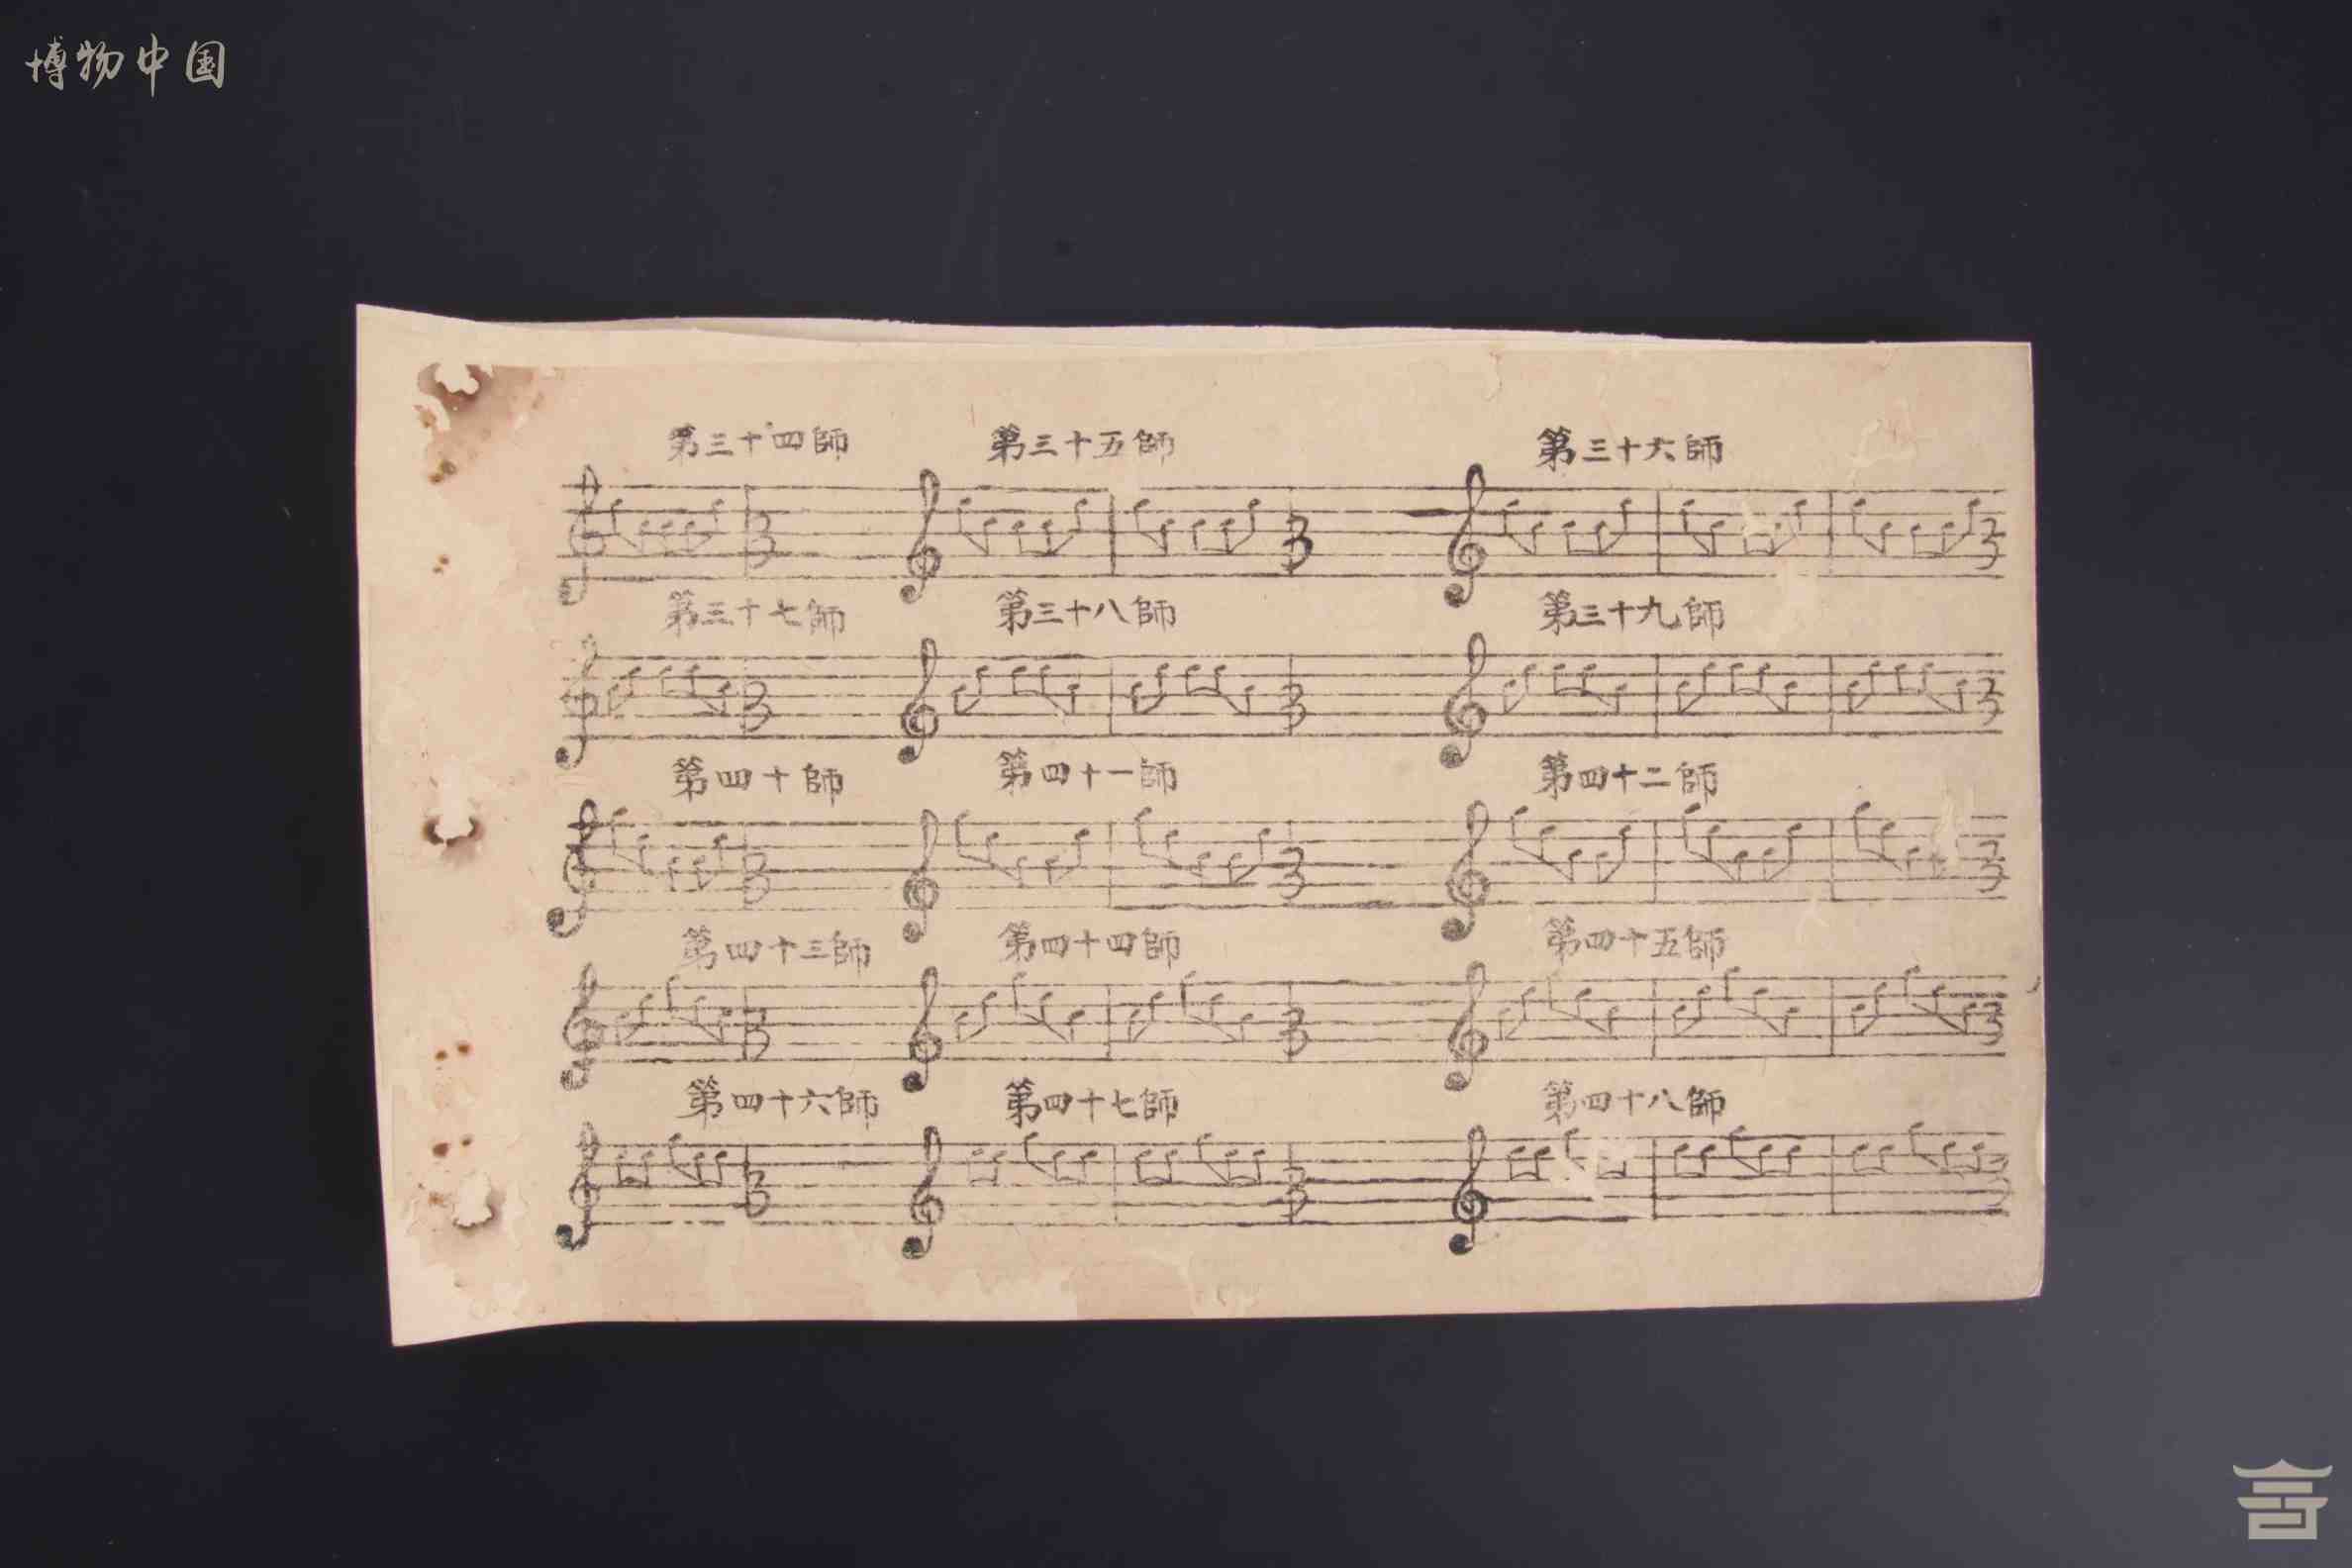 博物中国
第三十四師 第三十五師 第三十六師
第三十七師 第三十八師 第三十九師
第四十師 第四十一師 第四十二師
第四十三師 第四十四師 第四十五師
第四十六師 第四十七師 第四十八師